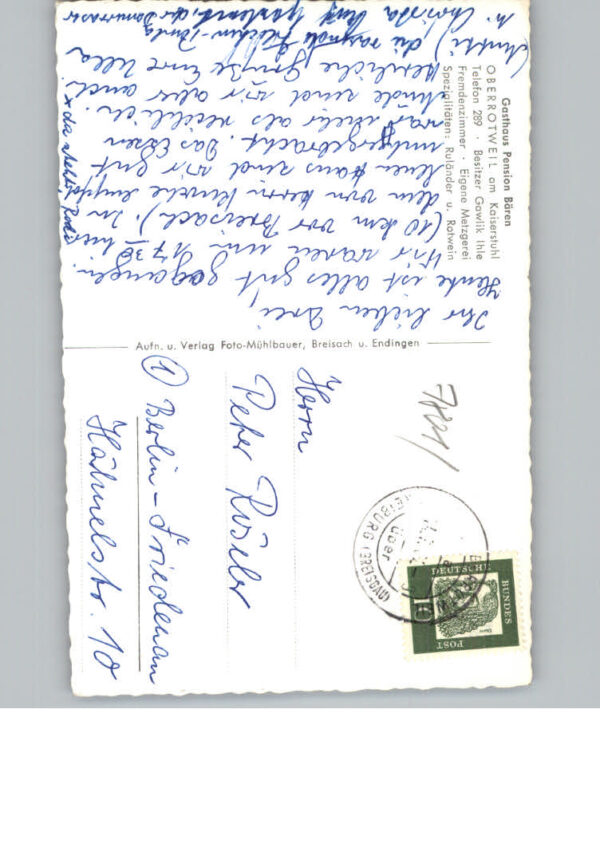 Gasthaus Pension Bären
OBERROTWEIL am Kaiserstuhl
Telefon 289 · Besitzer Gawlik Ihle
Fremdenzimmer · Eigene Metzgerei
Spezialitäten: Ruländer u. Rotwein
Ihr lieben Drei,
Heute ist alles gut gegangen.
Wir waren um 17 30 hier
(10 km vor Breisach). In
dem von Herrn
Haus sind wir gut
untergebracht. Das Essen
war mehr als reichlich.
Müde sind wir aber auch.
Herzliche Grüße Eure Ulla
Aufn. u. Verlag Foto-Mühlbauer, Breisach u. Endingen
Herrn
Peter Röseler
(1) Berlin-Friedenau
Hähnelstr. 10
7801/
über
FREIBURG (BREISGAU)
DEUTSCHE
BUNDES
POST
10
Dürer